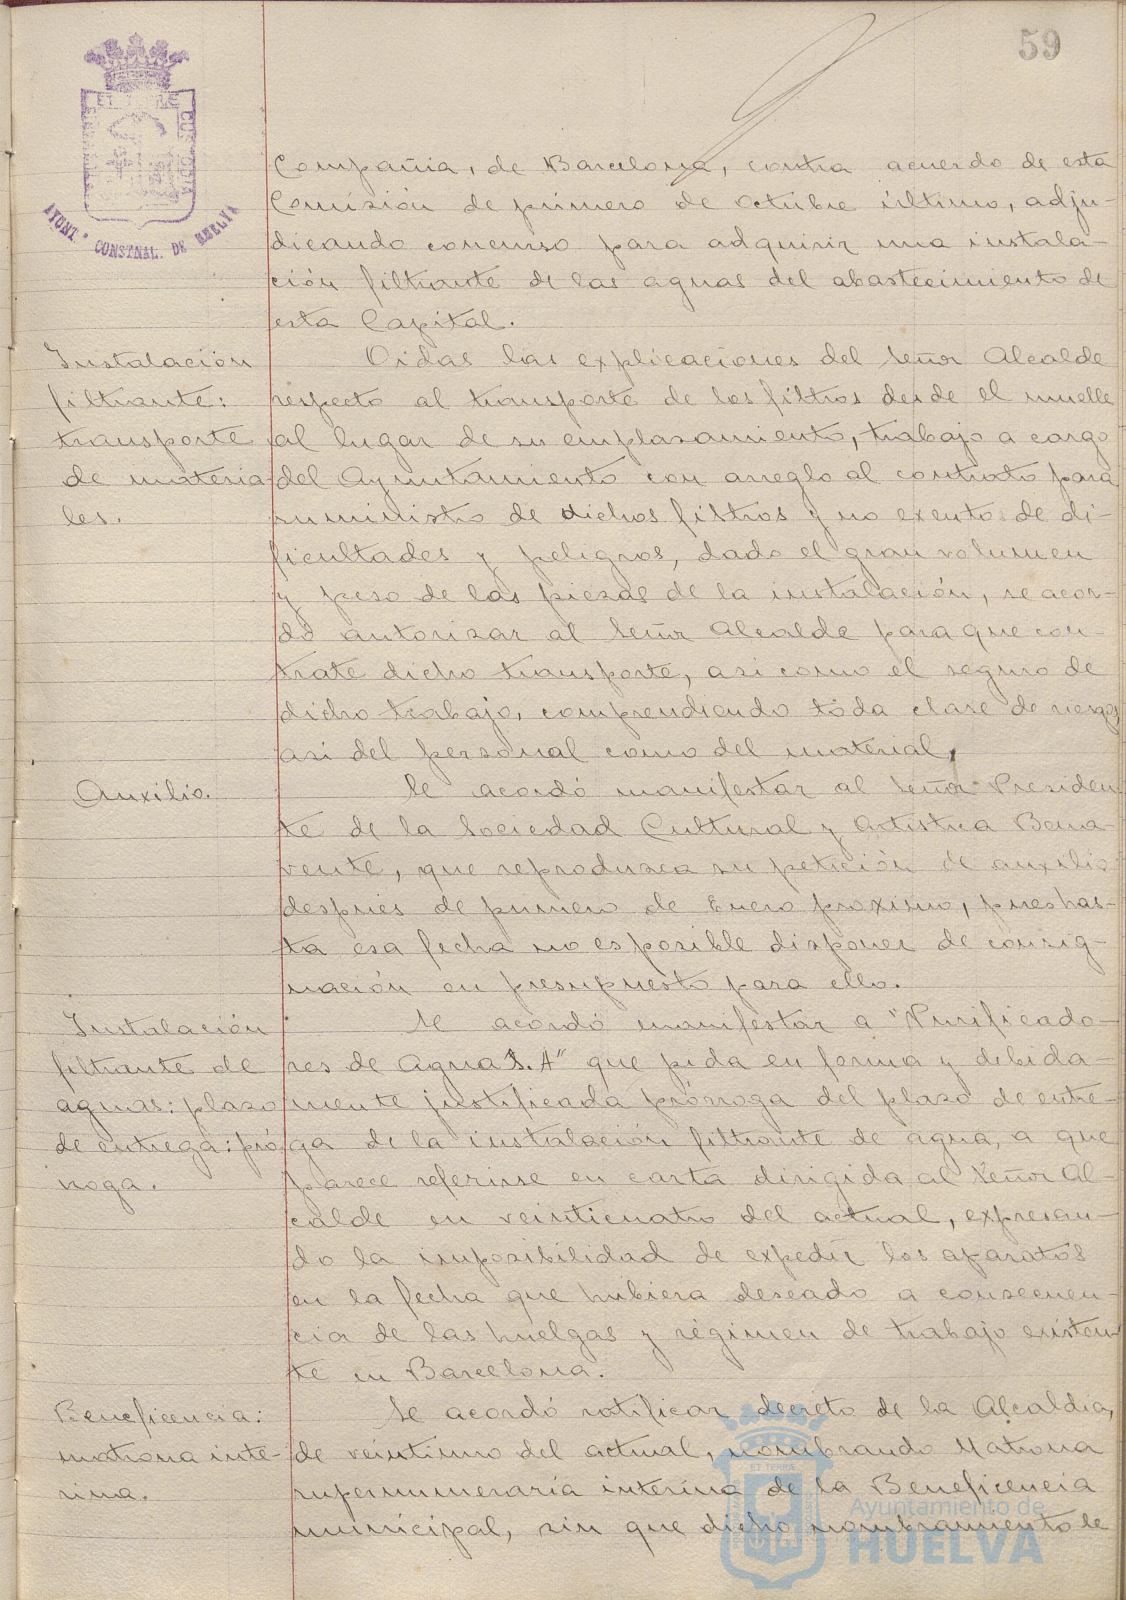 59
AYUNT. CONSTNAL. DE HUELVA
Compañia, de Barcelona, contra acuerdo de esta
Comisión de primero de Octubre último, adju-
dicando concurso para adquirir una instala-
ción filtrante de las aguas del abastecimiento de
esta Capital.
Instalación
filtrante:
transporte
de materia-
les.
Oidas las explicaciones del Señor Alcalde
respecto al transporte de los filtros desde el muelle
al lugar de su emplazamiento, trabajo a cargo
del Ayuntamiento con arreglo al contrato para
suministro de dichos filtros y no exento de di-
ficultades y peligros, dado el gran volumen
y peso de las piezas de la instalación, se acor-
dó autorizar al Señor Alcalde para que con-
trate dicho transporte, asi como el seguro de
dicho trabajo, comprendiendo toda clase de riesgos
asi del personal como del material.
Auxilio.
Se acordó manifestar al Señor Presiden-
te de la Sociedad Cultural y Artística Bena-
vente, que reproduzca su petición de auxilio
despues de primero de Enero proximo, pues has-
ta esa fecha no es posible disponer de consig-
nación en presupuesto para ello.
Instalación
filtrante de
aguas: plazo
de entrega: pró-
rroga.
Se acordó manifestar a "Purificado-
res de Agua S. A" que pida en forma y debida-
mente justificada prórroga del plazo de entre-
ga de la instalación filtrante de agua, a que
parece referirse en carta dirigida al Señor Al-
calde en veinticuatro del actual, expresan-
do la imposibilidad de expedir los aparatos
en la fecha que hubiera deseado a consecuen-
cia de las huelgas y régimen de trabajo existen-
te en Barcelona.
Beneficencia:
matrona inte-
rina.
Se acordó ratificar decreto de la Alcaldia,
de veintiuno del actual, nombrando Matrona
supernumeraría interina de la Beneficencia
municipal, sin que dicho nombramiento le
Ayuntamiento de
HUELVA